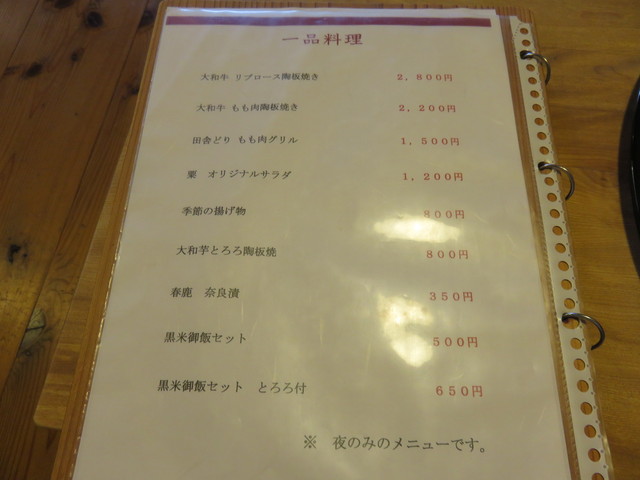 一品料理
大和牛 リブロース陶板焼き 2,800円
大和牛 もも肉陶板焼き 2,200円
田舎どり もも肉グリル 1,500円
粟 オリジナルサラダ 1,200円
季節の揚げ物 800円
大和芋とろろ陶板焼 800円
春鹿 奈良漬 350円
黒米御飯セット 500円
黒米御飯セット とろろ付 650円
※ 夜のみのメニューです。